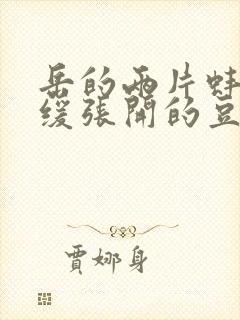 岳的两片蚌
缓张開的豆
賈娜身